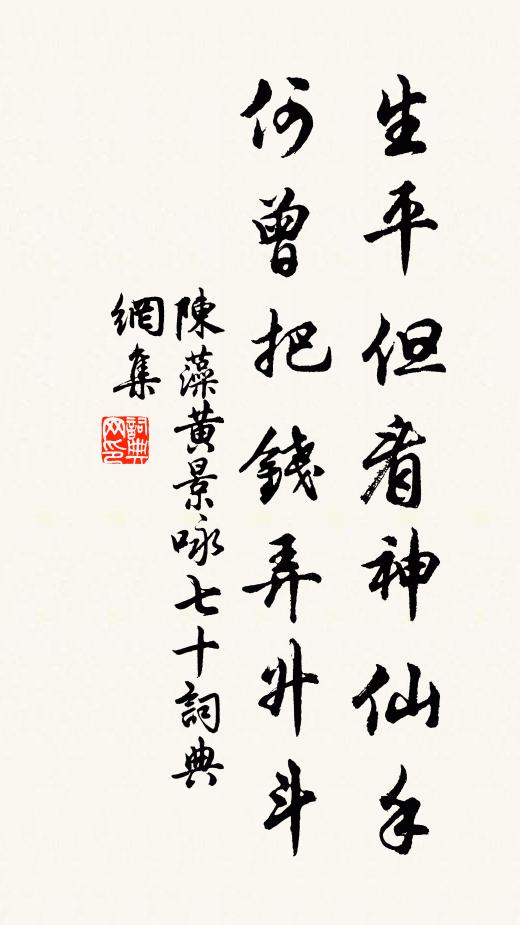 生平但看神仙手
何曾把錢弄升斗
陳藻黃景咏七十詞典
網集
詞典
网印